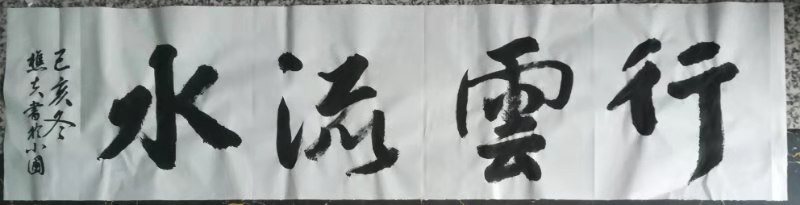 行雲流水
己亥冬
樵夫書於小園